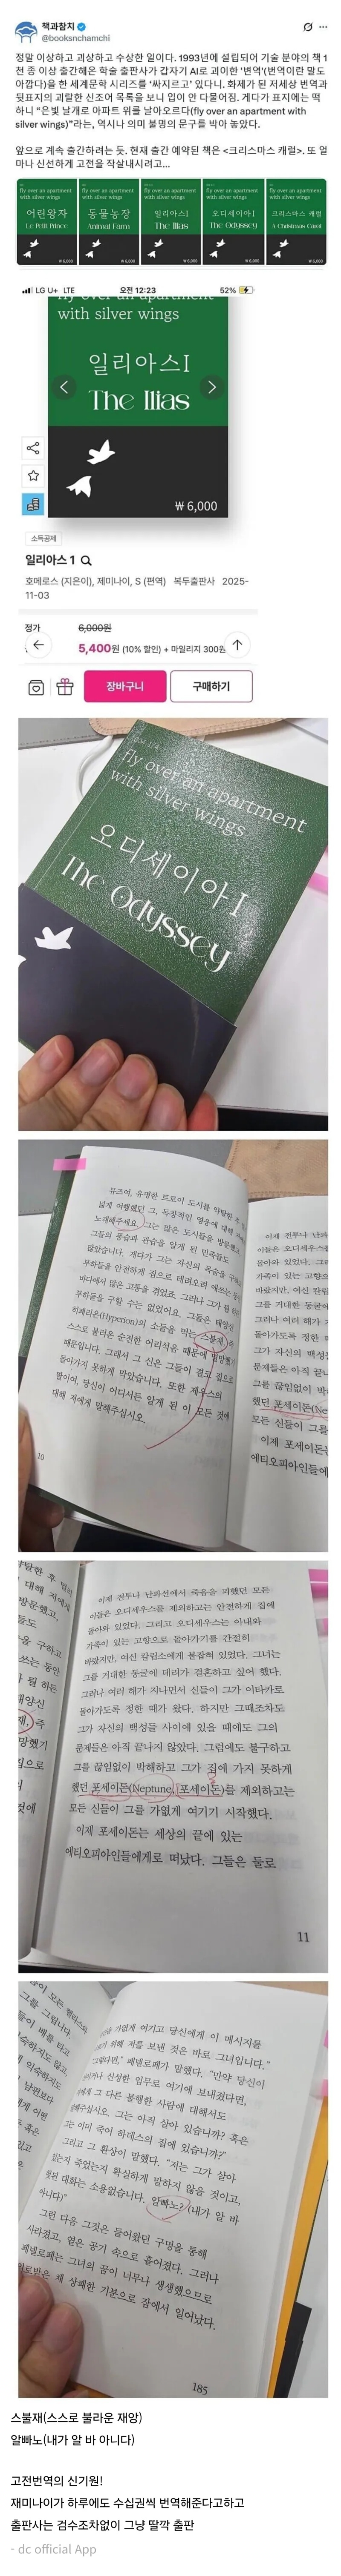 책과참치
@booksnchamchi
정말 이상하고 괴상하고 수상한 일이다. 1993년에 설립되어 기술 분야의 책 1
천 종 이상 출간해온 학술 출판사가 갑자기 AI로 괴이한 '변역'(번역이란 말도
아깝다)을 한 세계문학 시리즈를 '싸지르고' 있다니. 화제가 된 저세상 번역과
뒷표지의 괴랄한 신조어 목록을 보니 입이 안 다물어짐. 게다가 표지에는 떡
하니 "은빛 날개로 아파트 위를 날아오르다(fly over an apartment with
silver wings)"라는, 역시나 의미 불명의 문구를 박아 놓았다.
앞으로 계속 출간하려는 듯. 현재 출간 예약된 책은 <크리스마스 캐럴>. 또 얼
마나 신선하게 고전을 작살내시려고...
fly over an apartment
with silver wings
어린왕자
Le Petit Prince
₩ 6,000
fly over an apartment
with silver wings
동물농장
Animal Farm
₩ 6,000
fly over an apartment
with silver wings
일리아스I
The Ilias
₩ 6,000
fly over an apartment
with silver wings
오디세이아I
The Odyssey
₩ 6,000
fly over an apartment
with silver wings
크리스마스 캐럴
A Christmas Carol
₩ 6,000
LG U+ LTE
오전 12:23
52%
fly over an apartment
with silver wings
일리아스I
The Ilias
₩ 6,000
소득공제
일리아스 1
호메로스 (지은이), 제미나이, S (편역) 복두출판사 2025-
11-03
정가 6,000원
5,400원 (10% 할인) + 마일리지 300원
장바구니
구매하기
fly over an apartment
with silver wings
오디세이아I
The Odyssey
뮤즈여, 유명한 트로이 도시를 약탈한 후
넓게 여행했던 그, 독창적인 영웅에 대해
노래해주세요. 그는 많은 도시들을 방문했고,
그들의 풍습과 관습을 알게 된 민족들도
많았습니다. 게다가 그는 자신의 목숨을 구하고
부하들을 안전하게 집으로 데려오려 애쓰는 동안
바다에서 많은 고통을 겪었죠. 그러나 그가 뭘 하든
부하들을 구할 수는 없었어요. 그들은 태양신
히페리온(Hyperion)의 소들을 먹는 스불재, 즉
스스로 불러온 순전한 어리석음 때문에 멸망했기
때문입니다. 그래서 그 신은 그들이 결코 집으로
돌아가지 못하게 막았습니다. 또한 제우스의
딸이여, 당신이 어디서든 알게 된 이 모든 것에
대해 저에게 말해주십시오.
10
이제 전투나 난파선에서 죽음을 피했던 모든
이들은 오디세우스를 제외하고는 안전하게 집에
돌아와 있었다. 그리고 오디세우스는 아내와
가족이 있는 고향으로 돌아가기를 간절히
바랐지만, 여신 칼립소에게 붙잡혀 있었다. 그녀는
그를 거대한 동굴에 데려가 결혼하고 싶어 했다.
그러나 여러 해가 지나면서 신들이 그가 이타카로
돌아가도록 정한 때가 왔다. 하지만 그때조차도
그가 자신의 백성들 사이에 있을 때에도 그의
문제들은 아직 끝나지 않았다. 그럼에도 불구하고
그를 끊임없이 박해하고 그가 집에 가지 못하게
했던 포세이돈(Neptune, 포세이돈)를 제외하고는
모든 신들이 그를 가엾게 여기기 시작했다.
이제 포세이돈는 세상의 끝에 있는
에티오피아인들에게로 떠났다. 그들은 둘로
11
가엾게 여기고 당신에게 이 메시지를
위해 저를 보낸 것은 바로 그녀입니다."
"그렇다면," 페넬로페가 말했다. "만약 당신이
신성한 임무로 여기에 보내졌다면,
그 다른 불행한 사람에 대해서도
말해주십시오. 그는 아직 살아 있습니까? 혹은
그는 이미 죽어 하데스의 집에 있습니까?"
그리고 그 환상이 말했다. "저는 그가 살아
있는지 죽었는지 확실하게 말하지 않을 것이고,
헛된 대화는 소용없습니다. 알빠노? (내가 알 바
아니다)"
그런 다음 그것은 들어왔던 구멍을 통해
사라졌고, 옅은 공기 속으로 흩어졌다. 그러나
페넬로페는 그녀의 꿈이 너무나 생생했으므로
상쾌한 기분으로 잠에서 일어났다.
185
스불재(스스로 불라운 재앙)
알빠노(내가 알 바 아니다)
고전번역의 신기원!
재미나이가 하루에도 수십권씩 번역해준다고하고
출판사는 검수조차없이 그냥 딸깍 출판
- dc official App